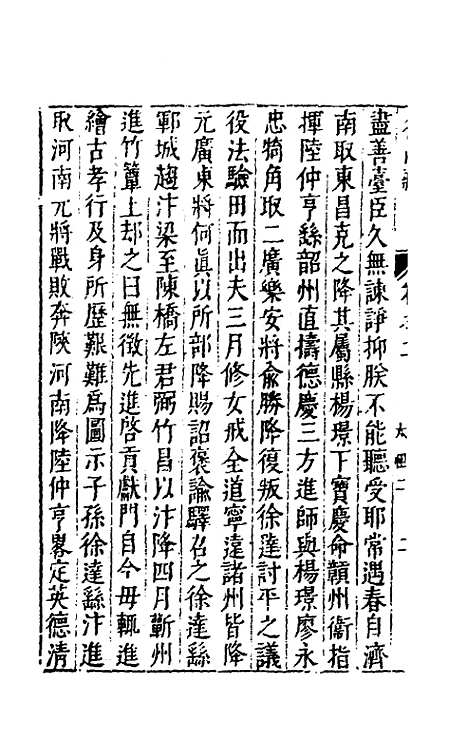 盡善臺臣久無諫諍抑朕不能聽受耶常遇春自濟
南取東昌克之降其屬縣楊璟下寶慶命贛州衛指
揮陸仲亨繇韶州直擣德慶三方進師與楊璟廖永
忠犄角取二廣樂安將俞勝降復叛徐達討平之議
役法驗田而出夫三月修女戒全道寧遠諸州皆降
元廣東將何眞以所部降賜詔褒諭驛召之徐達繇
鄆城趨汴梁至陳橋左君弼竹昌以汴降四月蘄州
進竹簟上却之曰無徵先進啓貢獻門自今毋輒進
繪古孝行及身所歷艱難爲圖示子孫徐達繇汴進
取河南元將戰敗奔陝河南降陸仲亨畧定英德清